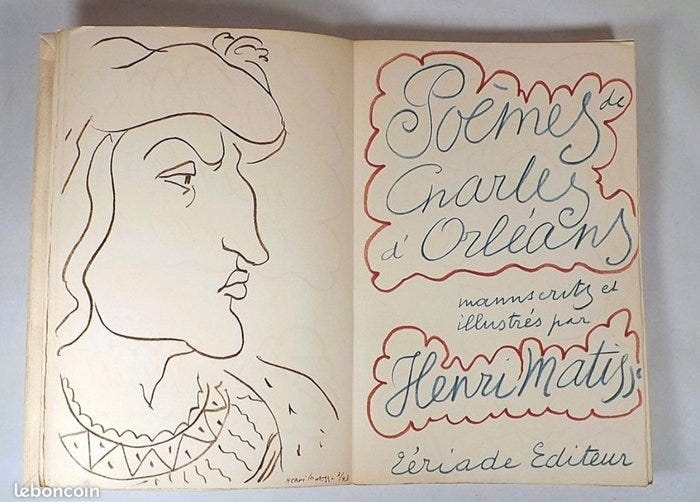 Henri Matisse 3/43
Poèmes de
Charles
d'Orléans
manuscrits et
illustrés par
Henri Matisse
Tériade Editeur
leboncoin